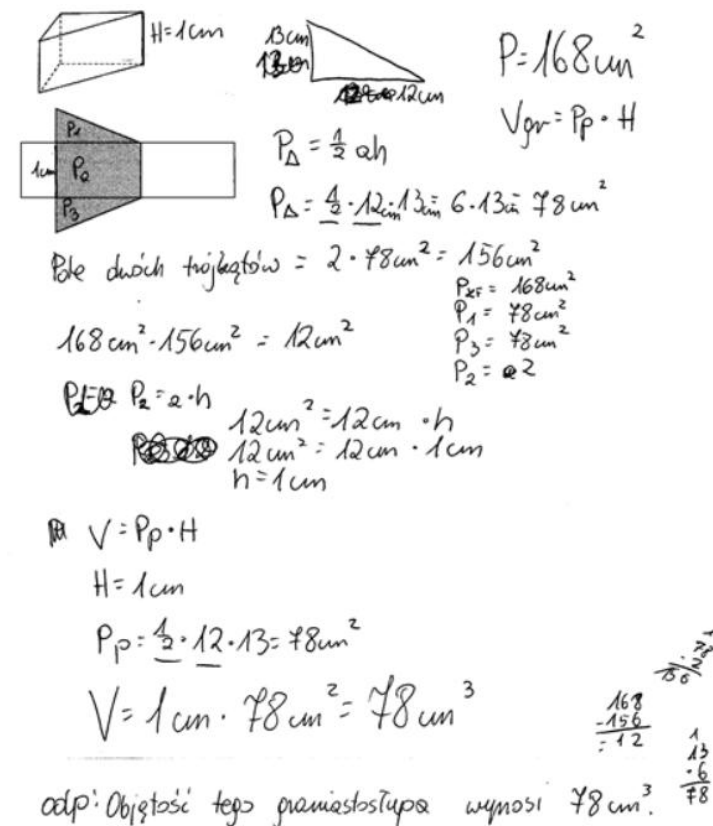 H=1cm
13cm
12cm
P=168cm²
Vgr=Pp·H
P1
1cm
P2
P3
P△ = 1/2 ah
P△ = 1/2·12cm·13cm = 6·13cm = 78cm²
Pole dwóch trójkątów = 2·78cm² = 156cm²
168cm²-156cm² = 12cm²
PZF = 168cm²
P1 = 78cm²
P3 = 78cm²
P2 = 2
P2=a·h
12cm²=12cm·h
12cm²=12cm·1cm
h=1cm
V=Pp·H
H=1cm
Pp=1/2·12·13=78cm²
V=1cm·78cm²=78cm³
78
·2
156
168
-156
=12
1
13
·6
78
odp: Objętość tego graniastosłupa wynosi 78cm³.